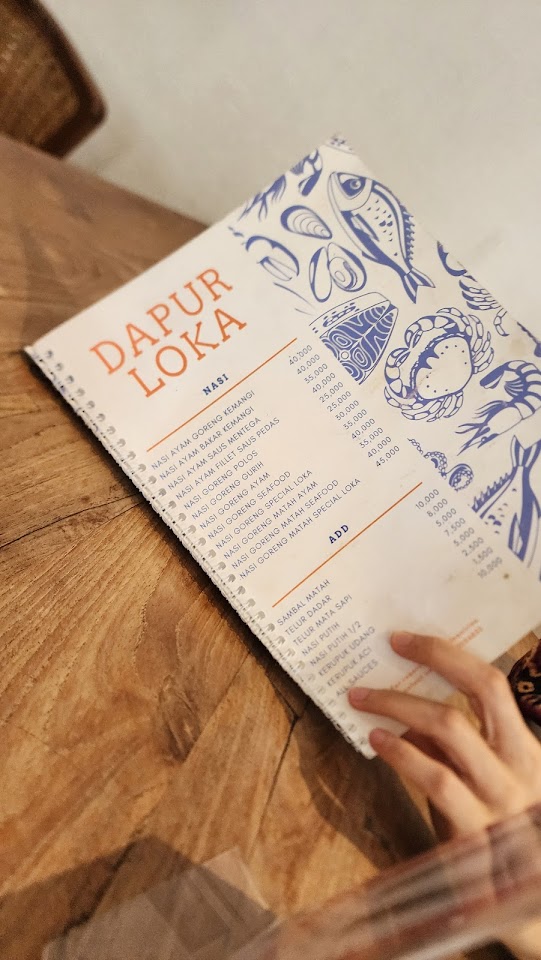 DAPUR
LOKA
NASI
NASI AYAM GORENG KEMANGI 40,000
NASI AYAM BAKAR KEMANGI 40,000
NASI AYAM SAUS MENTEGA 35,000
NASI AYAM FILLET SAUS PEDAS 40,000
NASI GORENG POLOS 25,000
NASI GORENG GURIH 25,000
NASI GORENG AYAM 30,000
NASI GORENG SEAFOOD 35,000
NASI GORENG SPECIAL LOKA 40,000
NASI GORENG MATAH AYAM 35,000
NASI GORENG MATAH SEAFOOD 40,000
NASI GORENG MATAH SPECIAL LOKA 45,000
ADD
SAMBAL MATAH 10,000
TELUR DADAR 8,000
TELUR MATA SAPI 5,000
NASI PUTIH 7,500
NASI PUTIH 1/2 5,000
KERUPUK UDANG 2,500
KERUPUK ACI 1,500
ALL SAUCES 10,000